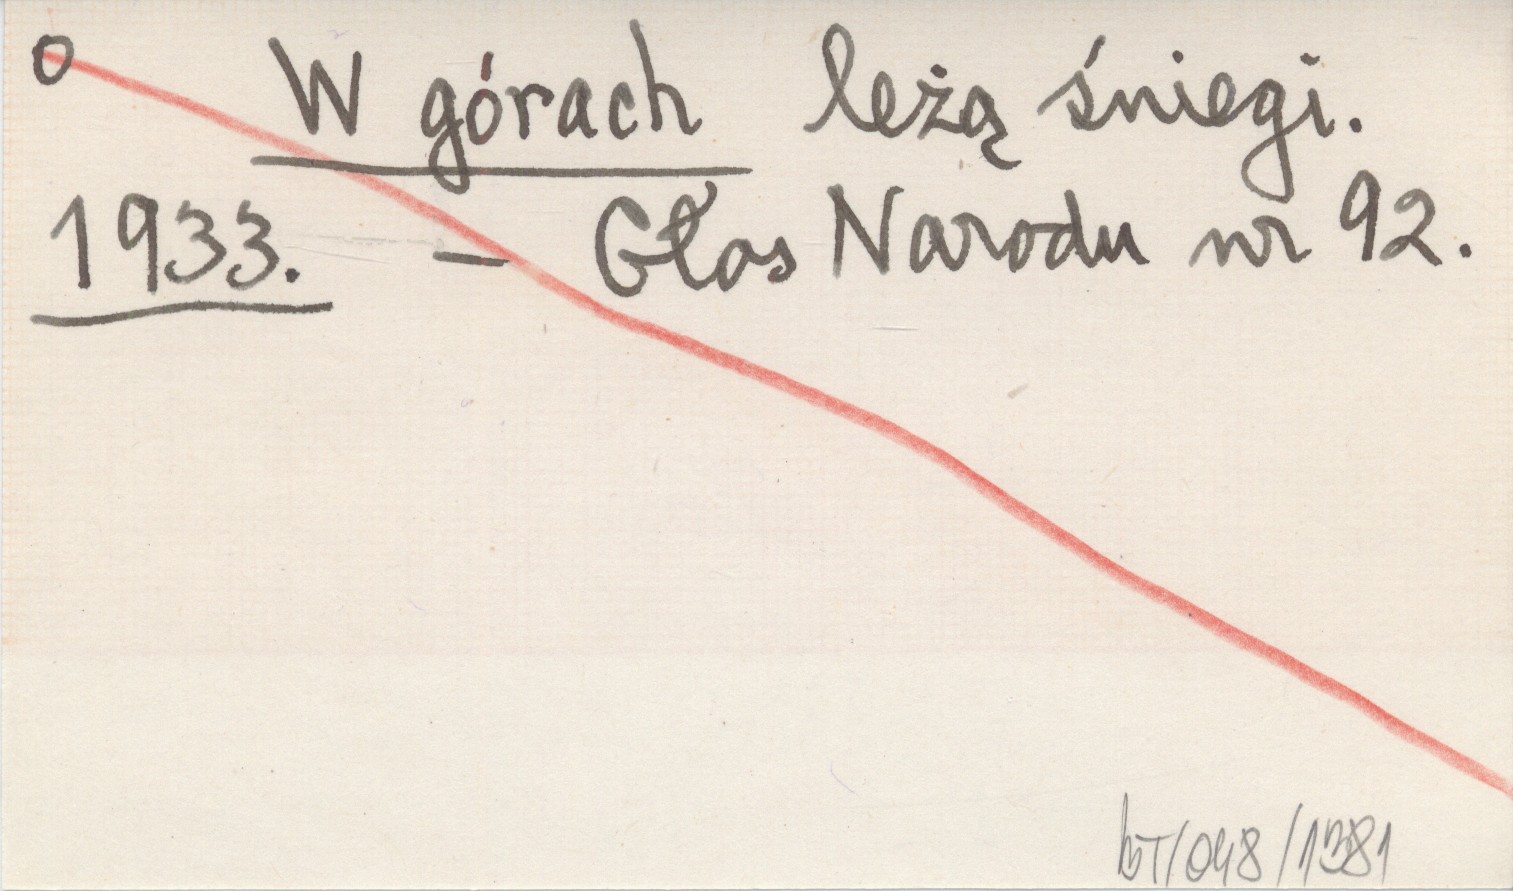 o W górach leżą śniegi.
1933. - Głos Narodu nr 92.
bT/048/1381